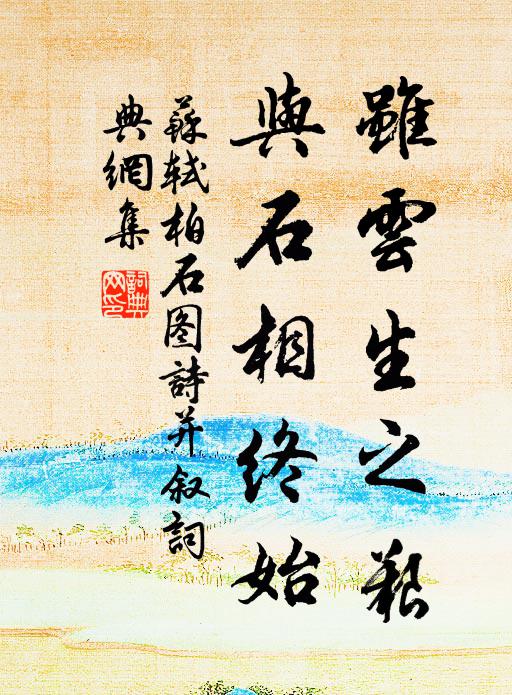 雖雲生之艱
與石相終始
蘇軾柏石图詩并叙詞
典網集
詞典
网印